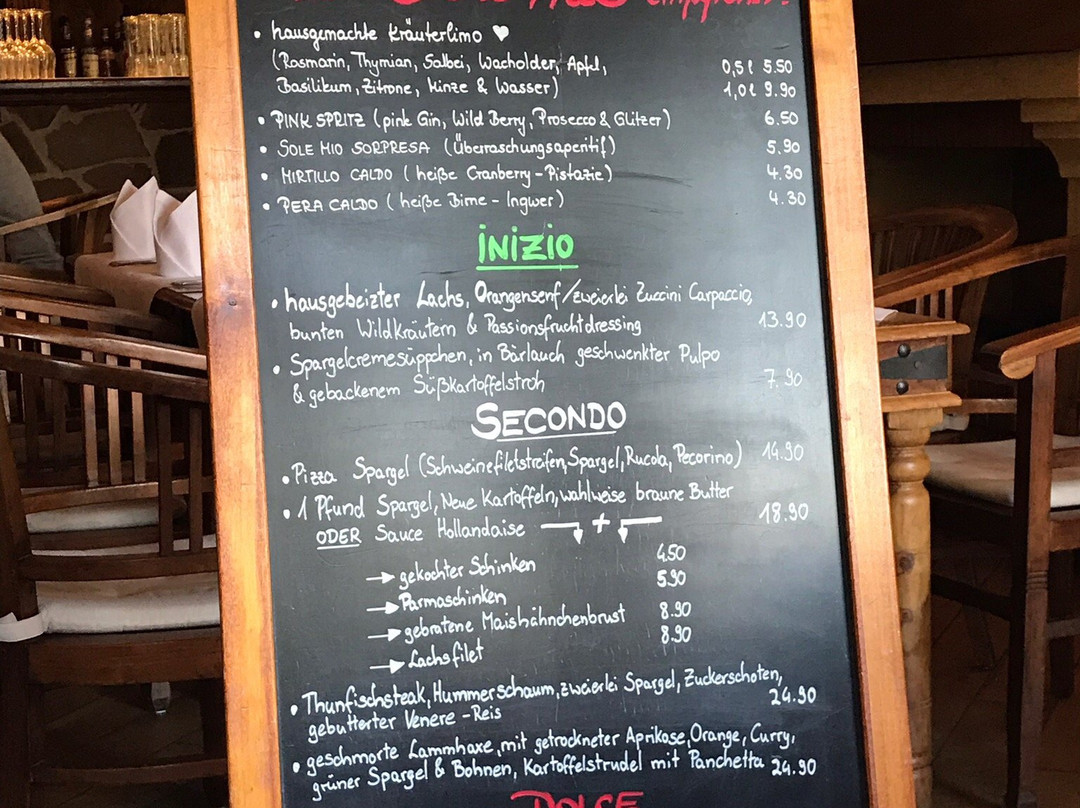 • hausgemachte Kräuterlimo ♥
(Rosmarin, Thymian, Salbei, Wacholder, Apfel, 0,5l 5.50
Basilikum, Zitrone, Minze & Wasser) 1,0l 9.90
• PINK SPRITZ (pink Gin, Wild Berry, Prosecco & Glitzer) 6.50
• SOLE MIO SORPRESA (Überraschungsaperitif) 5.90
• MIRTILLO CALDO (heiße Cranberry-Pistazie) 4.30
• PERA CALDO (heiße Birne - Ingwer) 4.30
iNiZiO
• hausgebeizter Lachs, Orangensenf/zweierlei Zuccini Carpaccio,
bunten Wildkräutern & Passionsfruchtdressing 13.90
• Spargelcremesüppchen, in Bärlauch geschwenkter Pulpo
& gebackenem Süßkartoffelstroh 7.90
SECONDO
• Pizza Spargel (Schweinefiletstreifen, Spargel, Rucola, Pecorino) 14.90
• 1 Pfund Spargel, Neue Kartoffeln, wahlweise braune Butter
ODER Sauce Hollandaise + 18.90
→ gekochter Schinken 4.50
→ Parmaschinken 5.90
→ gebratene Maishähnchenbrust 8.90
→ Lachsfilet 8.90
• Thunfischsteak, Hummerschaum, zweierlei Spargel, Zuckerschoten,
gebutterter Venere-Reis 24.90
• geschmorte Lammhaxe, mit getrockneter Aprikose, Orange, Curry,
grüner Spargel & Bohnen, Kartoffelstrudel mit Panchetta 24.90
DOLCE